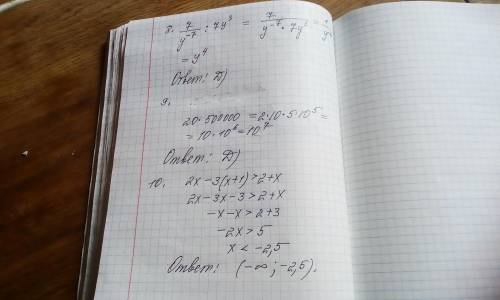 8. 7/y⁻⁷ : 7y³ = 7/(y⁻⁷ · 7y³) =
= y⁴
Ответ: Д)
9.
20·500000 = 2·10·5·10⁵ =
= 10·10⁶ = 10⁷
Ответ: Д)
10. 2x-3(x+1)>2+x
2x-3x-3>2+x
-x-x>2+3
-2x>5
x<-2,5
Ответ: (-∞;-2,5).